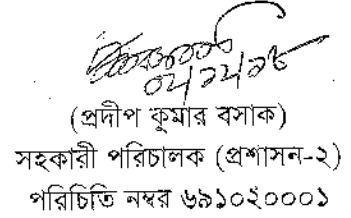 (প্রদীপ কুমার বসাক)
সহকারী পরিচালক (প্রশাসন-২)
পরিচিতি নম্বর ৬৯১০২০০০১